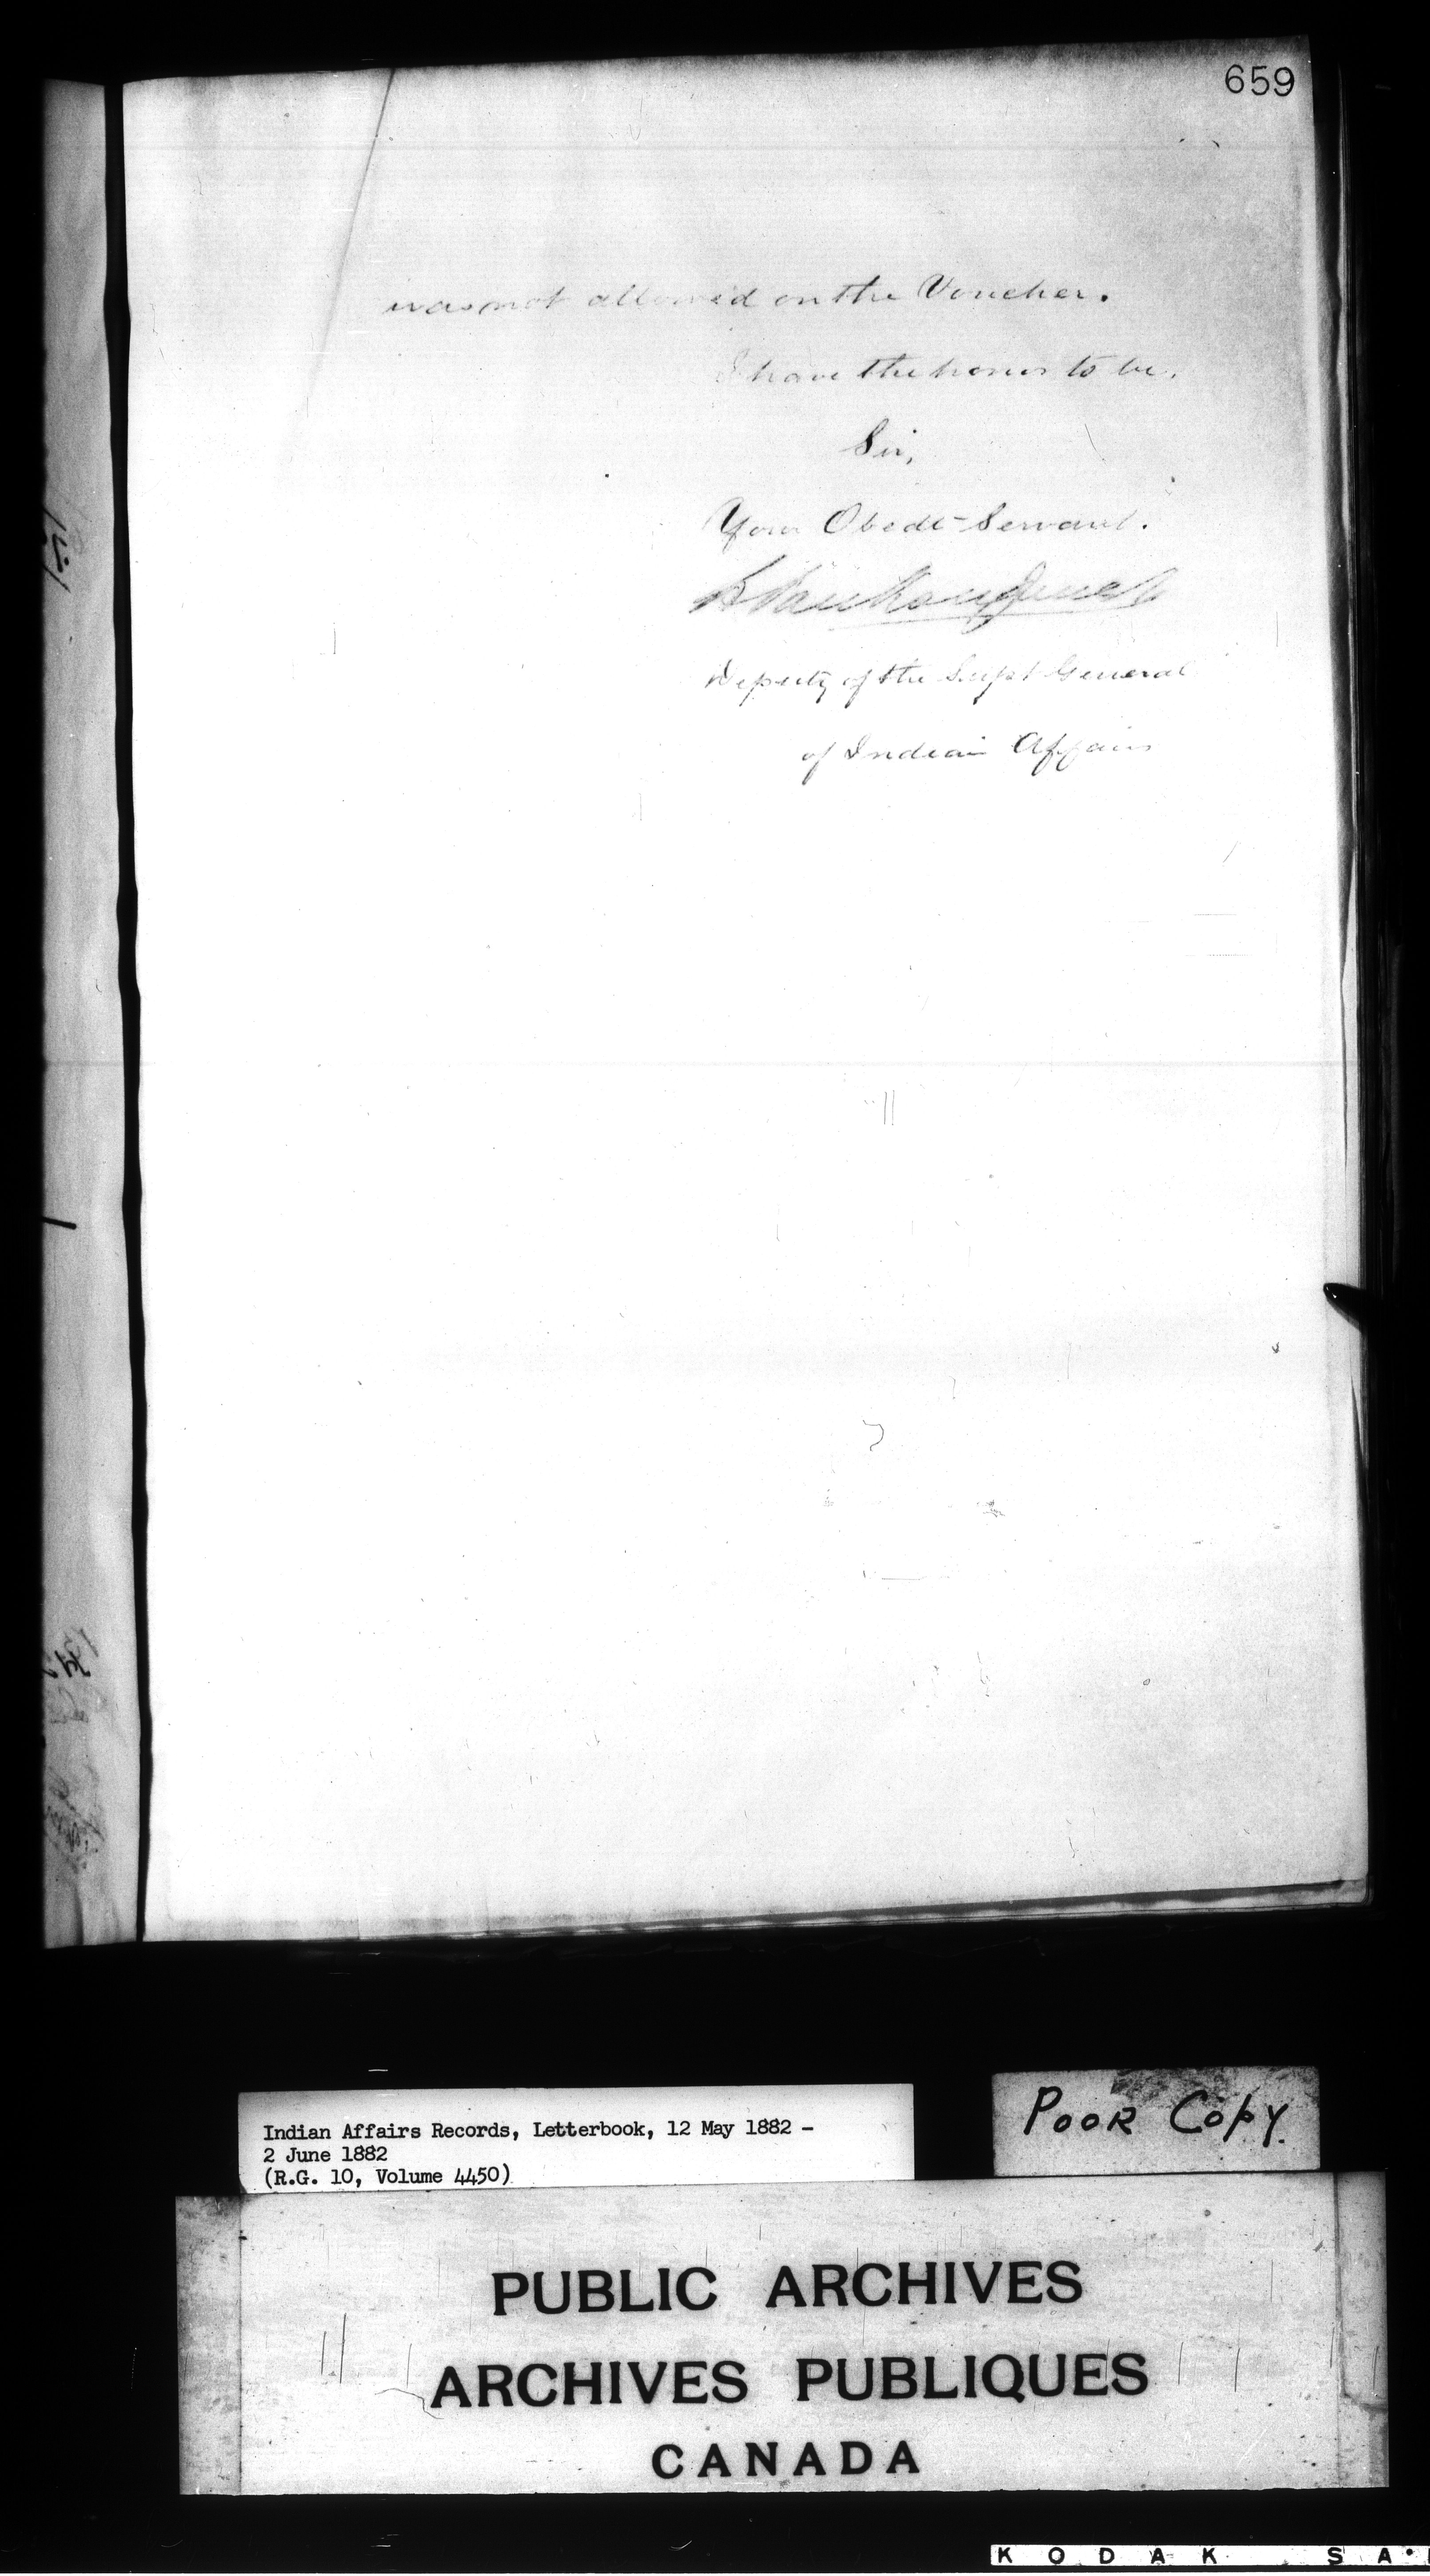 659
was not allowed on the Voucher.
I have the honor to be,
Sir,
Your Obedt Servant.
L VanKoughnet
Deputy of the Supt General
of Indian Affairs
Indian Affairs Records, Letterbook, 12 May 1882 -
2 June 1882
(R.G. 10, Volume 4450)
POOR COPY.
PUBLIC ARCHIVES
ARCHIVES PUBLIQUES
CANADA
KODAK SA